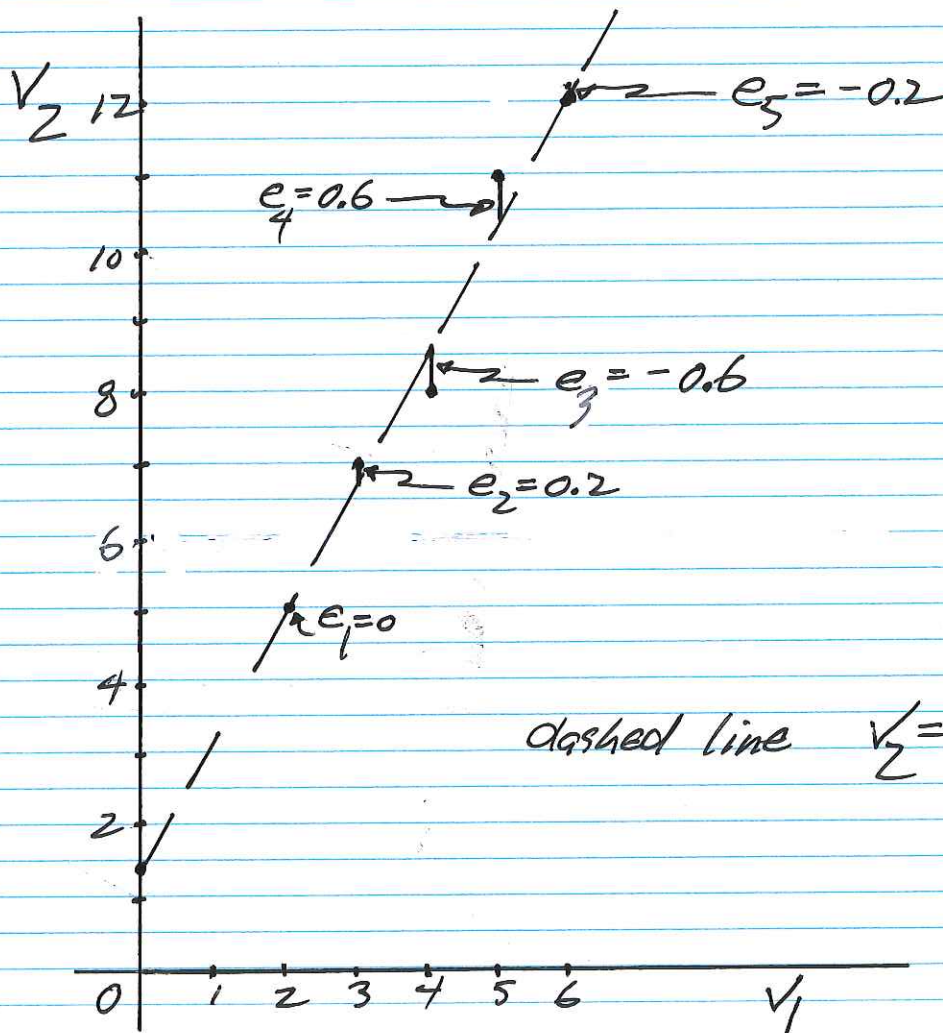 V₂ 12
e₅ = -0.2
e₄ = 0.6
10
8
e₃ = -0.6
e₂ = 0.2
6
e₁ = 0
4
dashed line V₂ =
2
0 1 2 3 4 5 6 V₁